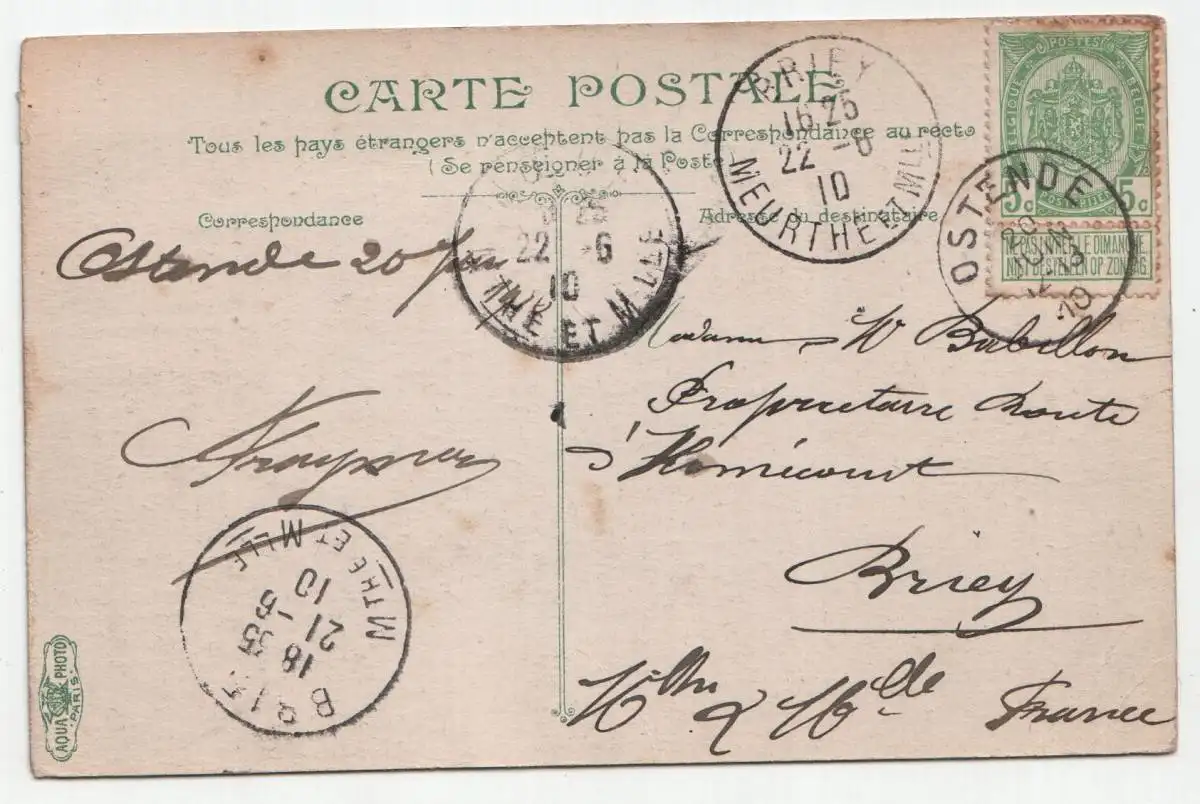 CARTE POSTALE
Tous les pays étrangers n'acceptent pas la Correspondance au recto
(Se renseigner à la Poste
Correspondance
Adresse du destinataire
Ostende 20
BRIEY
16 25
22 -6
10
MEURTHE ET MLLE
25
22 -6
10
THE ET MLLE
POSTES
BELGIQUE BELGIË
5c 5c
POSTERIJEN
NE PAS LIVRER LE DIMANCHE
NIET BESTELLEN OP ZONDAG
OSTENDE
10
Madame W Babillon
Propriétaire Route
d'Homécourt
Briey
Mthe & Mlle France
BRIEY
18 35
21 -6
10
MTHE ET MLLE
AQUA PHOTO
PARIS